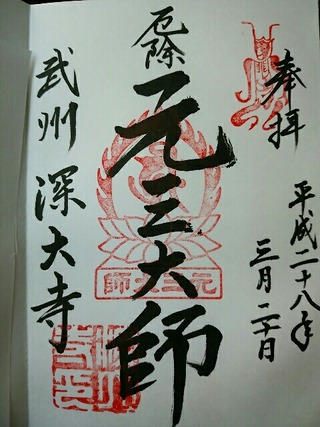 奉拝
平成二十八年
三月二十日
厄除
元三大師
元三大師
武州 深大寺